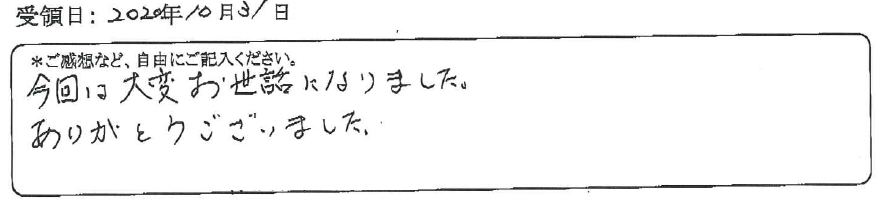 受領日：2020年10月31日
＊ご感想など、自由にご記入ください。
今回は大変お世話になりました。
ありがとうございました。